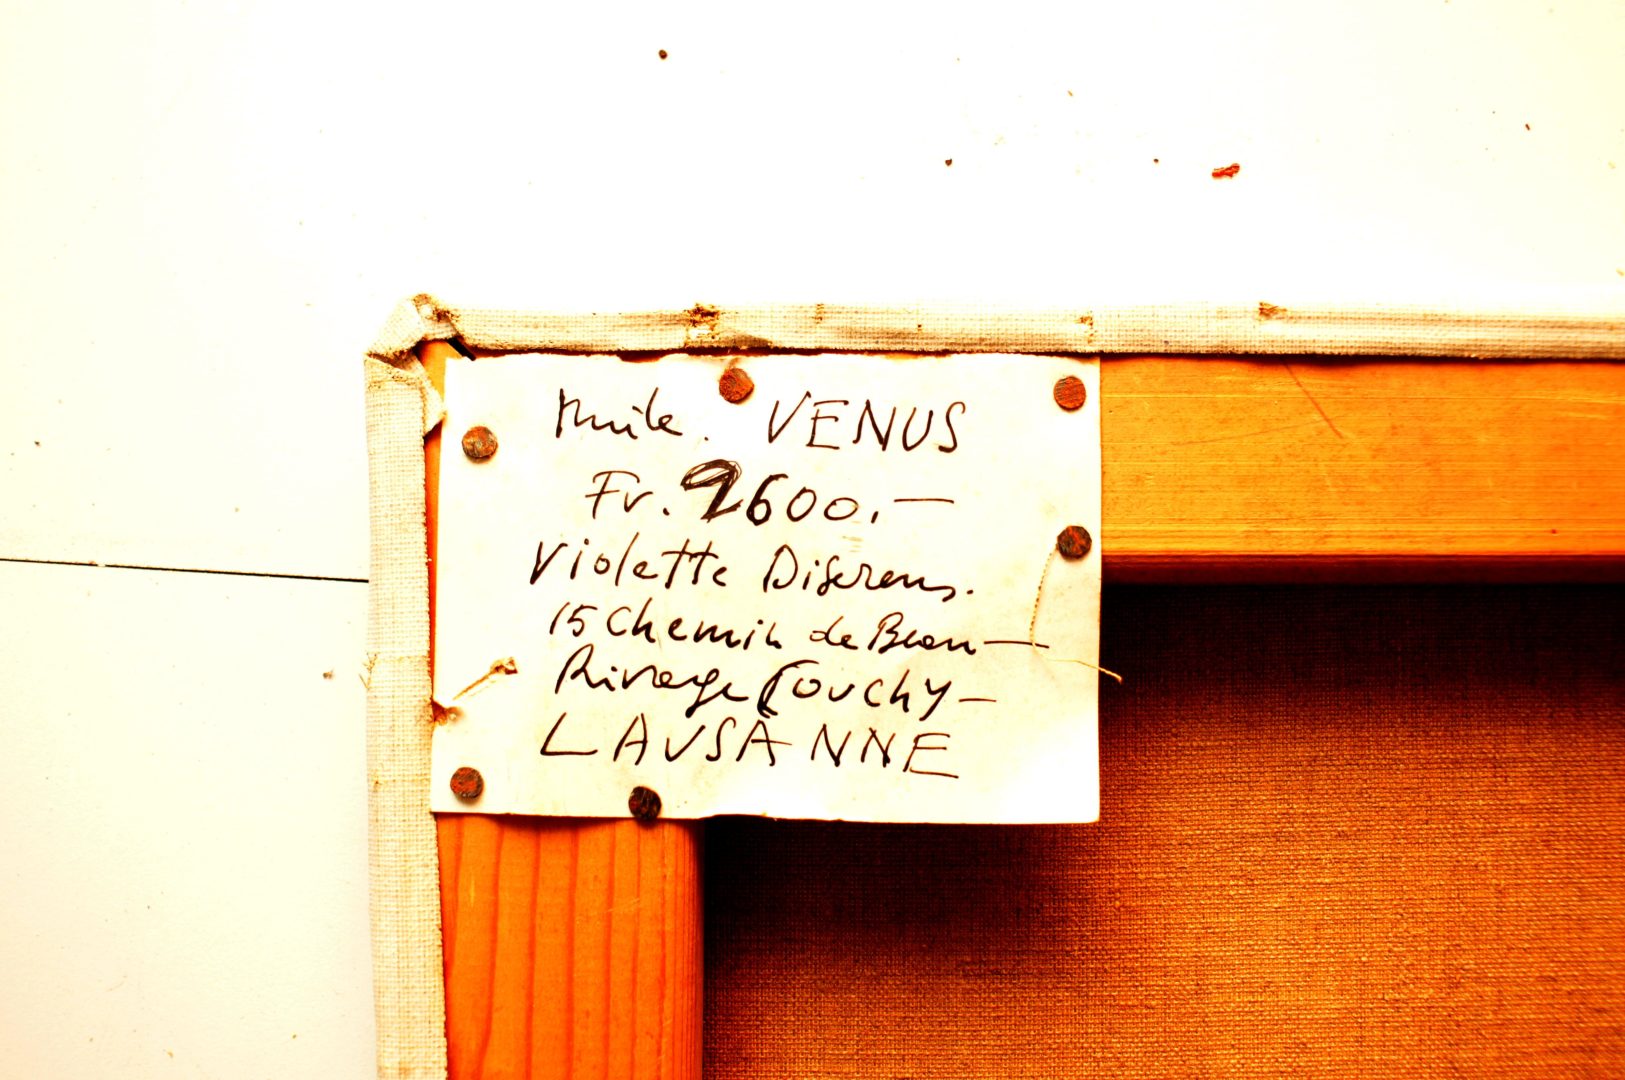 Huile. VENUS
Fr. 2600.—
Violette Diserens.
15 Chemin de Beau—
Rivage (OUCHY—
LAUSANNE